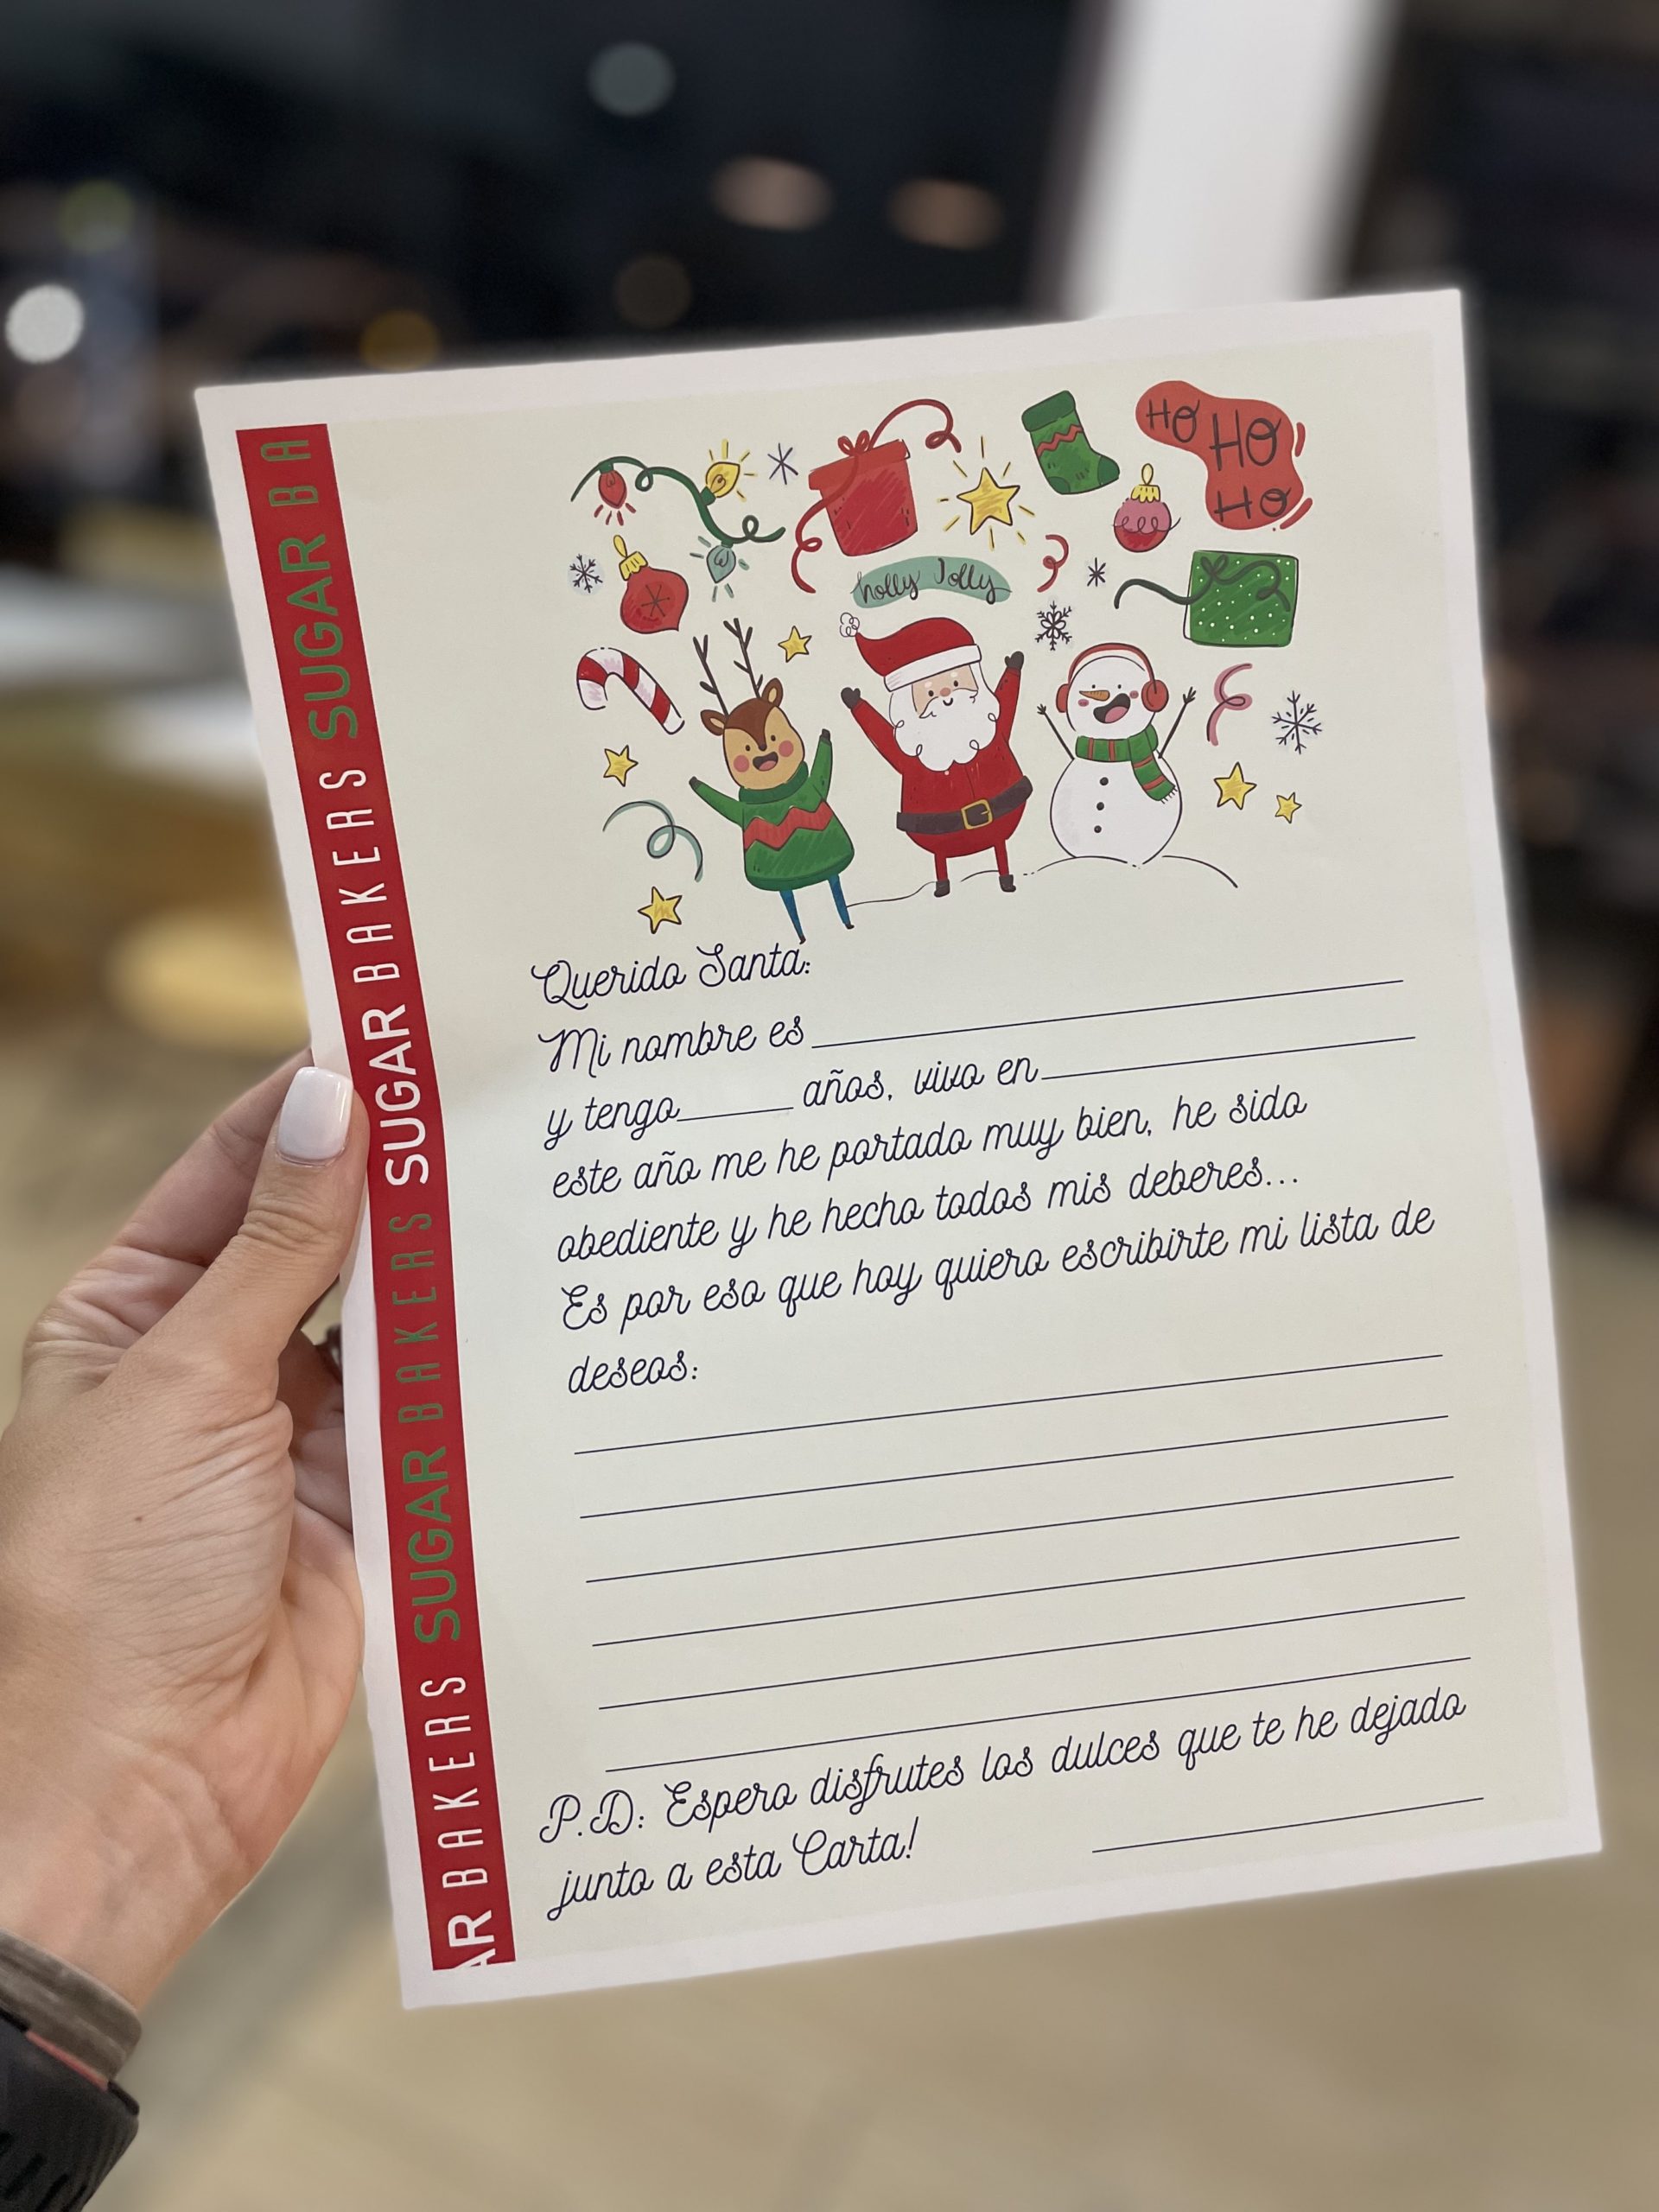 HO HO
HO
holly Jolly
Querido Santa:
Mi nombre es
y tengo años, vivo en
este año me he portado muy bien, he sido
obediente y he hecho todos mis deberes...
Es por eso que hoy quiero escribirte mi lista de
deseos:
P.D: Espero disfrutes los dulces que te he dejado
junto a esta Carta!
AR BAKERS SUGAR BAKERS SUGAR BAKERS SUGAR BA